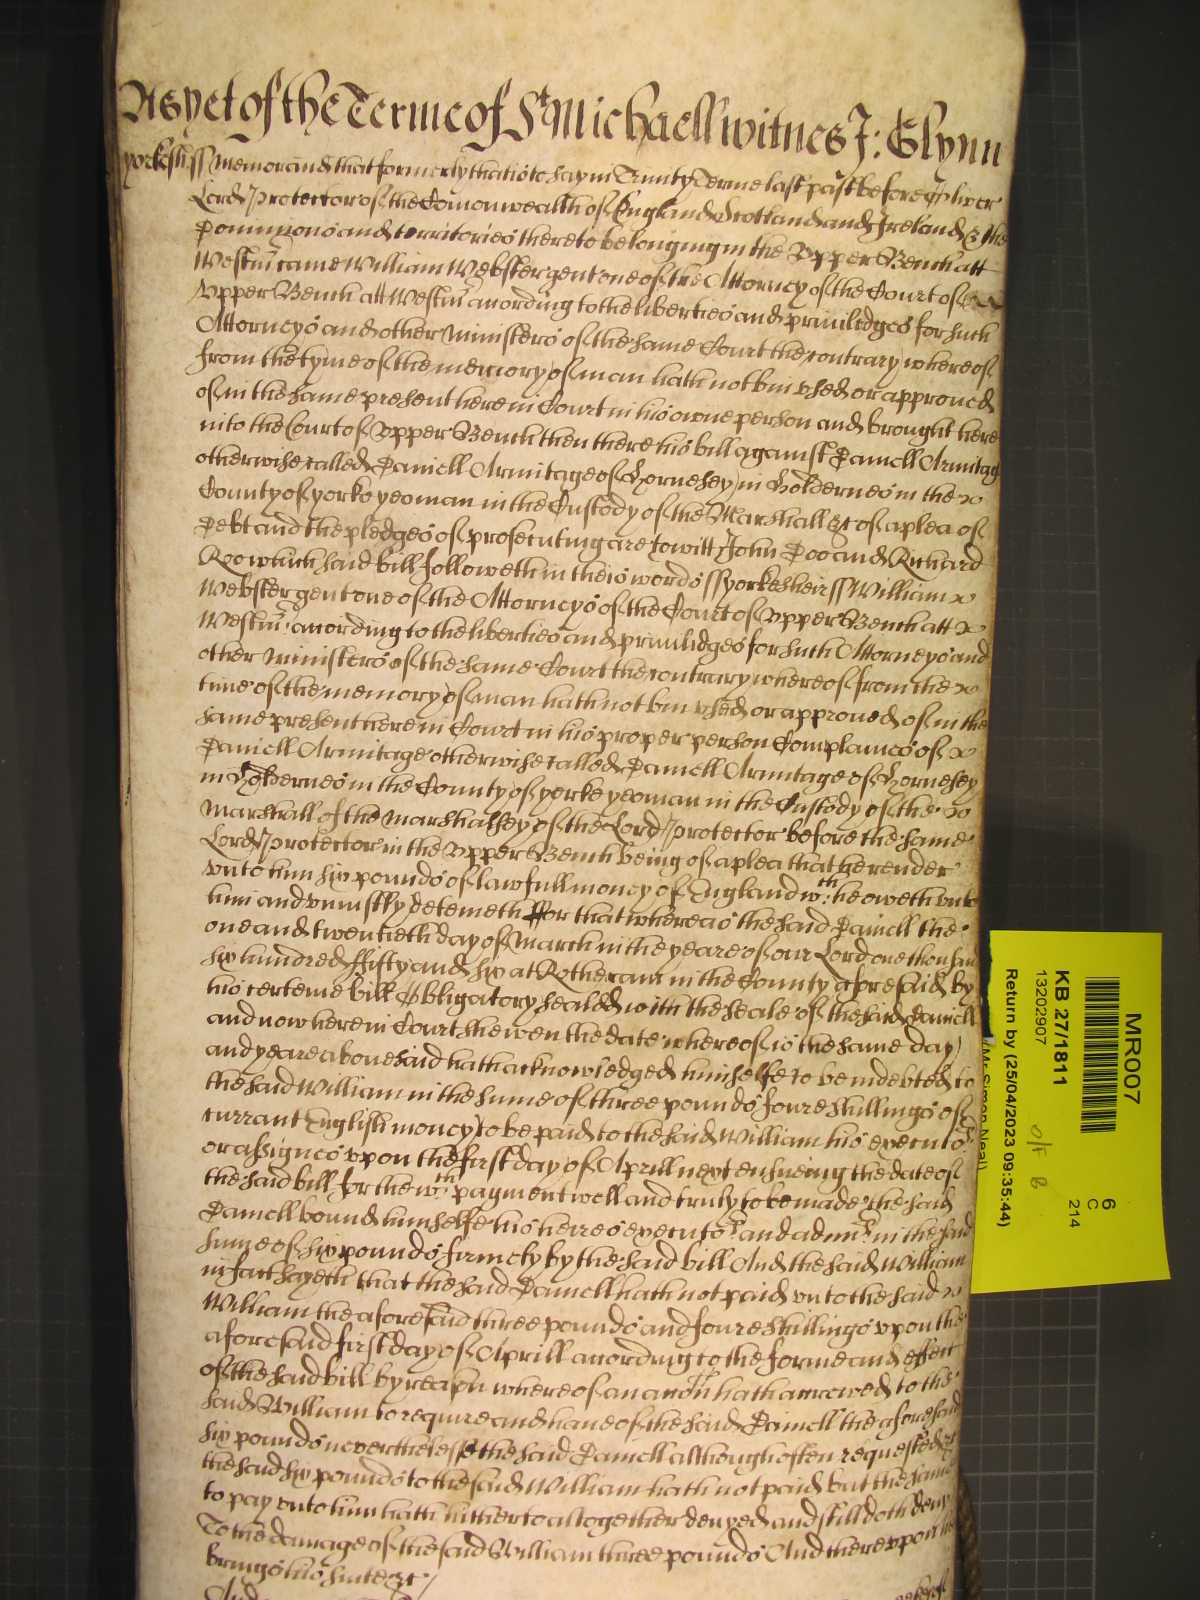 As yet of the Terme of St Michaell witnes J: Glynn
yorkesh ss Memorand that formerly that is to say in Trinity Terme last past before Oliver
Lord Protector of the Comonwealth of England Scotland and Ireland & the
Dominions and territories thereto belonging in the Upper Bench att
Westmr came William Webster gent one of the Attorney of the Court of
Upper Bench att Westmr according to the liberties and priuiledges for such
Attorneys and other Ministers of the same Court the contrary whereof
from the tyme of the memory of man hath not bin vsed or approued
of in the same present here in Court in his owne person and brought here
into the Court of Upper Bench then there his bill against Daniell Armitag
otherwise called Daniell Armitage of Hornesey in Holdernes in the
County of yorke yeoman in the Custody of the Marshall &c of a plea of
Debt and the pledges of prosecuting are to witt John Doo and Richard
Roo which said bill followeth in theis words ss yorkesheir ss William
Webster gent one of the Attorneys of the Court of Upper Bench att
Westmr according to the liberties and priuiledges for such Attorneys and
other Ministers of the same Court the contrary whereof from the
time of the memory of man hath not bin vsed or approued of in the
same present here in Court in his proper person Complaines of
Daniell Armitage otherwise called Daniell Armitage of Hornesey
in Holdernes in the County of yorke yeoman in the Custody of the
Marshall of the Marshalsey of the Lord Protector before the same
Lord Protector in the Upper Bench being of a plea that he render
vnto him six pounds of lawfull money of England wth he oweth vnto
him and vniustly deteineth ffor that whereas the said Daniell the
one and twentieth day of March in the yeare of our Lord one thousan
six hundred ffifty and six at Rotheram in the County aforesaid by
his certeine bill Obligatory sealed with the seale of the said Daniell
and now here in Court shewen the date whereof is the same day
and yeare aboue said hath acknowledged himselfe to be indebted to
the said William in the sume of three pounds foure shillings of
currant English money to be paid to the said William his executors
or assignes vpon the first day of Aprill next ensueing the date of
the said bill for the wth payment well and truly to be made the said
Daniell bound himselfe his heires executors and admrs in the said
sume of six pounds firmely by the said bill And the said William
in fact sayeth that the said Daniell hath not paid vnto the said
William the aforesaid three pounds and foure shillings vpon the
aforesaid first day of Aprill according to the forme and effect
of the said bill by reason whereof an accon hath accrewed to the
said William to require and haue of the said Daniell the aforesaid
six pounds neverthelesse the said Daniell although often requested
the said six pounds to the said William hath not paid but the same
to pay vnto him hath hitherto altogether denyed and still doth deny
To the damage of the said William three pounds And therevpon he
brings his suite &c
And
MR007
KB 27/1811
13202907
Return by (25/04/2023 09:35:44)
6
C
214
(Mr Simon Neal)